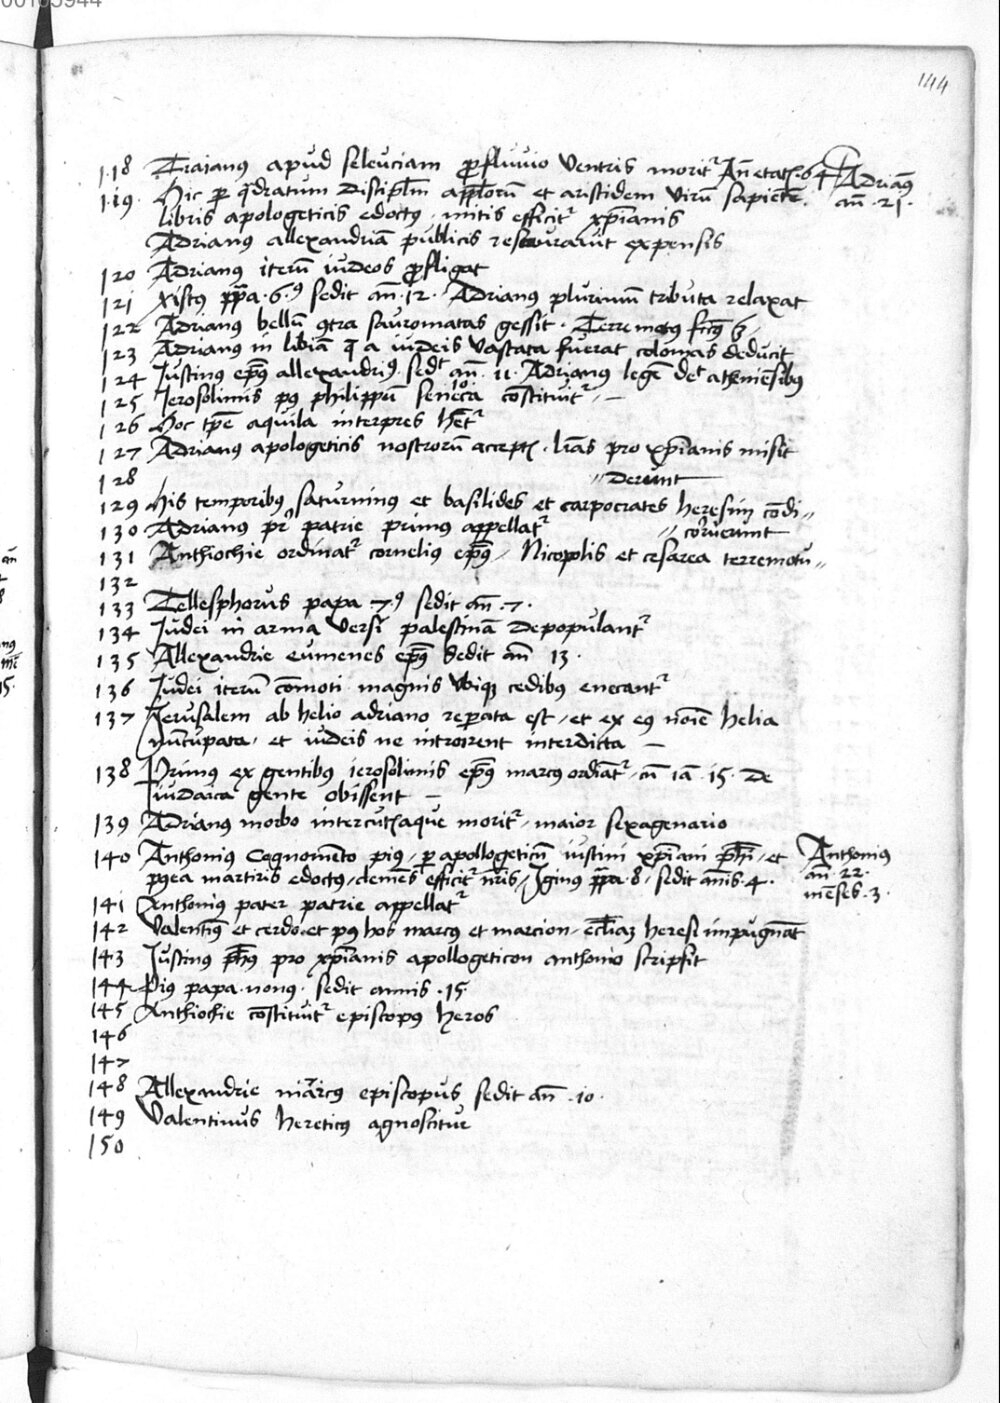 00105944
144
1·18 Traianꝰ apud seleuciam ꝓfluuio ventris morit᷑ An̄ etat᷑·64 Adrianꝰ
1·19· Hic ꝑ q̄dratum discip̄lm ap̄lorū et aristidem virū sapiētē· an̄·21·
libris apologeticis edoctꝰ· mitis efficit᷑ xp̄ianis
Adrianus allexandriā publicis restaurauit expensis
120 Adrianus iterū iudeos ꝓfligat
121 Xistꝰ pp̄a·6·ꝰ sedit an̄·12· Adrianus plurimū tributa relaxat
122 Adrianus bellū ꝯtra sauromatas gessit· Terremotꝰ
123 Adrianus in libiā q̄ a iudeis vastata fuerat colonias deducit
124 Justinus ep̄ꝰ allexandriꝰ sed᷑ an̄·11· Adrianus legē det atheniēsibꝰ
125 Jerosolimis pꝰ philippū seneca 10 cōstituit᷑ —
126 Hoc tp̄e aquila interpres het᷑
127 Adrianus apologeticis nostrorū accept᷑· lr̄as pro xp̄ianis misit
128
〃derunt
129 His temporibꝰ saturninus et basilides et carpocrates heresim cōdi〃
130 Adrianus pr̄ patrie primus appellat᷑ 〃coruerunt
131 Anthiochie ordinat᷑ cornelius ep̄ꝰ· Nicopolis et cesarea terremotu〃
132
133 Tellesphorus papa 7·ꝰ sedit an̄·7·
134 Judei in arma versi palestinā depopulant᷑
135 Allexandrie eumenes ep̄ꝰ sedit an̄ 13·
136 Judei iterū cōmoti magnis vbiqꝫ cedibꝰ enecant᷑
137 Jerusalem ab helio adriano reꝑata est· et ex eꝰ noīe helia
nūcupata· et iudeis ne introirent interdicta —
138 Primus ex gentibus ierosolimis ep̄ꝰ marcꝰ ordiat᷑· cū iā·15· de
iudaica gente obissent —
139 Adrianꝰ morbo intercutꝭ aque morit᷑· maior sexagenario
140 Anthonius Cognomēto piꝰ· ꝑ apollogeticū iustini xp̄iani ph̄i· et Anthonius
pꝰea martiris edoctꝰ· clemēs efficit᷑ nr̄is· Iginus pp̄a·8· sedit ānis·4· an̄·22·
mēses·3·
141 Anthoniꝰ pater patrie appellat᷑
142 Valentīꝰ et cerdo· et pꝰ hos marcꝰ et marcion· eccl̄iaꝫ heresi impugnāt
143 Justinus ph̄us pro xp̄ianis apollogeticon anthonio scripsit
144 Pius papa·nonꝰ· sedit annis·15·
145 Anthiochie cōstituit᷑ episcopꝰ heros
146
147
148 Allexandrie marcꝰ episcopus sedit an̄·10·
149 Valentinus hereticꝰ agnoscitur
150